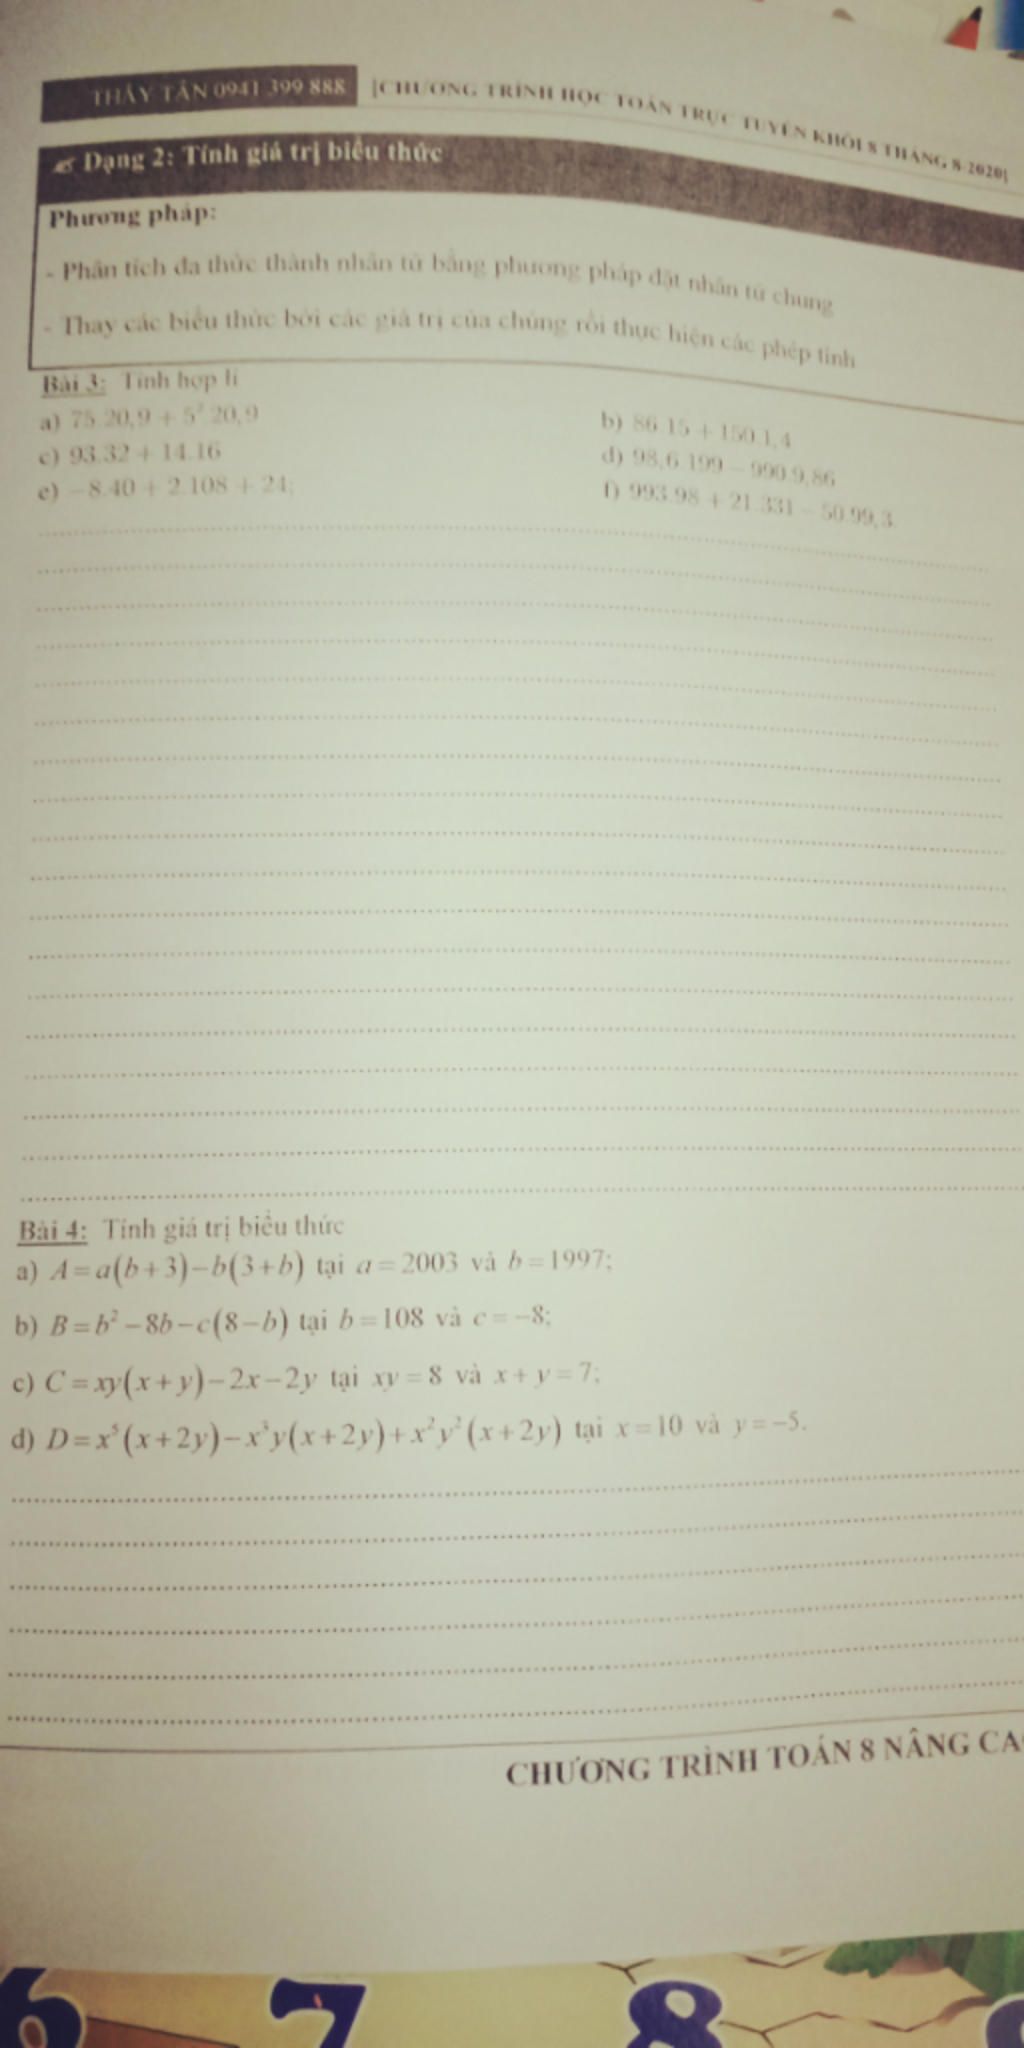 THẦY TÂN 0941 399 888 [CHƯƠNG TRÌNH HỌC TOÁN TRỰC TUYẾN KHỐI 8 THÁNG 8-2020]
Dạng 2: Tính giá trị biểu thức
Phương pháp:
- Phân tích đa thức thành nhân tử bằng phương pháp đặt nhân tử chung
- Thay các biểu thức bởi các giá trị của chúng rồi thực hiện các phép tính
Bài 3: Tính hợp lí
a) 75.20,9 + 5².20,9
b) 86.15 + 150.1,4
c) 93.32 + 14.16
d) 98,6.199 – 990.9,86
e) –8.40 + 2.108 + 24;
f) 993.98 + 21.331 – 50.99,3
Bài 4: Tính giá trị biểu thức
a) A = a(b+3) – b(3+b) tại a = 2003 và b = 1997;
b) B = b² – 8b – c(8–b) tại b = 108 và c = –8;
c) C = xy(x+y) – 2x – 2y tại xy = 8 và x + y = 7;
d) D = x⁵(x+2y) – x³y(x+2y) + x²y²(x+2y) tại x = 10 và y = –5.
CHƯƠNG TRÌNH TOÁN 8 NÂNG CA
6 7 8